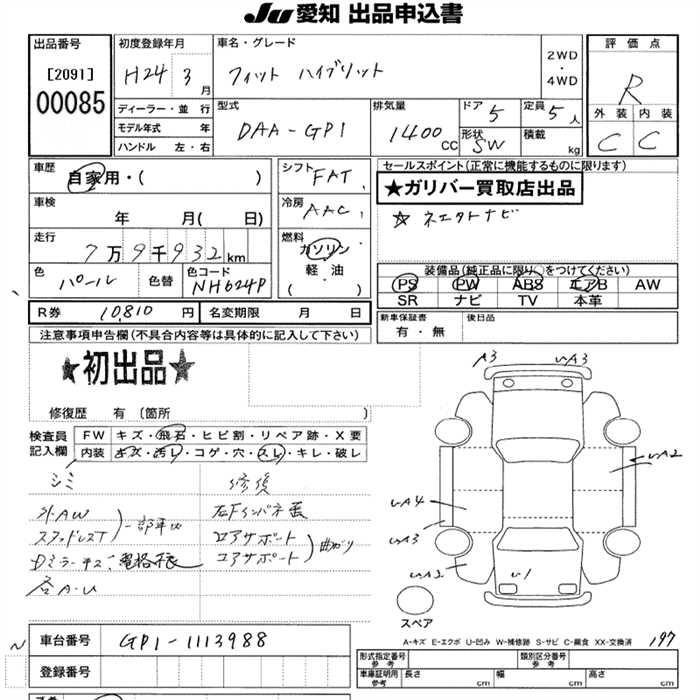 JU 愛知 出品申込書
出品番号
[2091]
00085
初度登録年月
H24 3 月
車名・グレード
フィット ハイブリット
2WD
・
4WD
評価点
R
外装 内装
C C
ディーラー・並行
モデル年式 年
ハンドル 左・右
型式
DAA-GP1
排気量
1400 CC
ドア 5
定員 5 人
形状 SW
積載 kg
車歴
自家用・( )
シフト FAT
セールスポイント(正常に機能するものに限ります)
★ガリバー買取店出品
☆ ネエクトナビ
車検
年 月( 日)
冷房 AAC
走行
7万9千932km
燃料
ガソリン
軽油
( ・ )
色 パール
色替
色コード NH624P
装備品(純正品に限り○をつけてください)
PS PW ABS エアB AW
SR ナビ TV 本革
R券 10,810 円
名変期限 月 日
新車保証書
有・無
後日品
注意事項申告欄(不具合内容等は具体的に記入して下さい)
★初出品★
修復歴 有 (箇所 )
検査員
記入欄
FW キズ・飛石・ヒビ割・リペア跡・X要
内装 キズ・汚レ・コゲ・穴・スレ・キレ・破レ
シミ
修復
外AW
スタッドレスT
左Fインパネ曲
コアサポート
コアサポート
曲がり
A3
A3
A2
A4
A3
A2
U1
スペア
A-キズ E-エクボ U-凹み W-補修跡 S-サビ C-腐食 XX-交換済
197
車台番号 GP1-1113988
登録番号
形式指定番号
参考
類別区分番号
参考
車庫証明用
参考
長さ cm
幅 cm
高さ cm